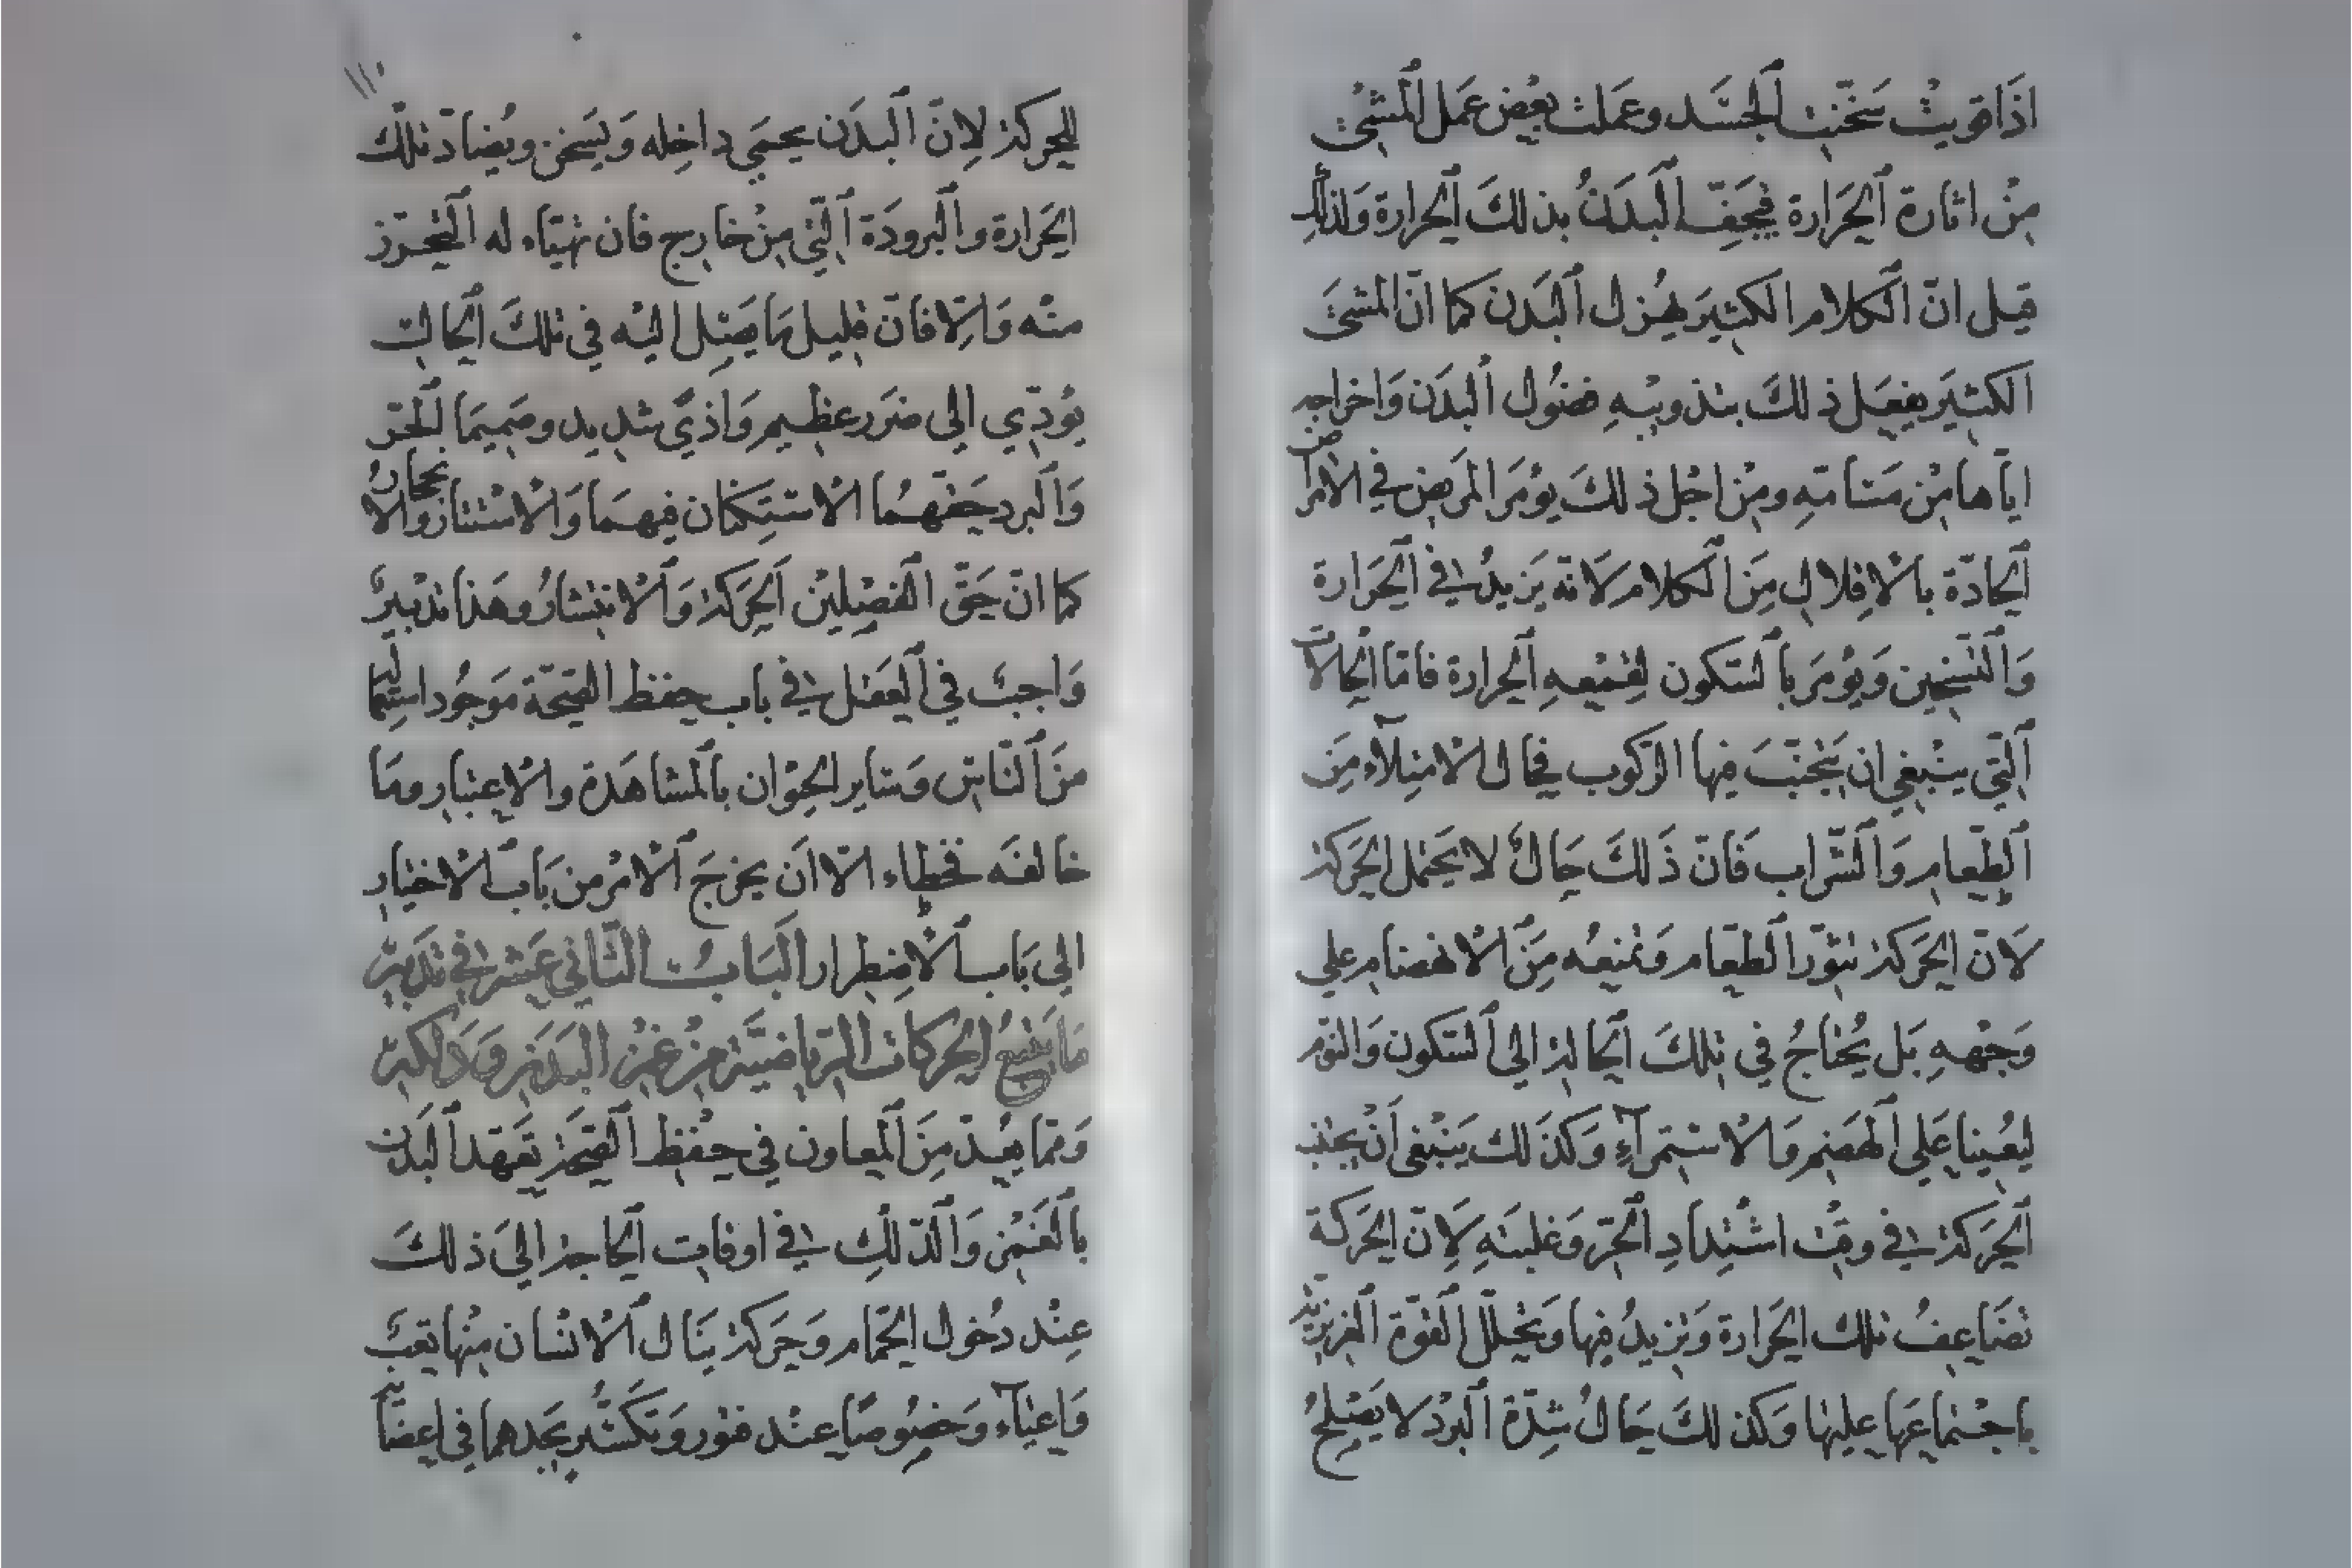 اذا قويت سخّنت الجسد وعملت بعض عمل المشي
من اثارة الحرارة فيجفّ البدن بذلك الحرارة ولذلك
قيل انّ الكلام الكثير يهزل البدن كما انّ المشي
الكثير يفعل ذلك بتذويبه فضول البدن واخراجه
ايّاها من مسامّه ومن اجل ذلك يؤمر المرضى في الامراض
الحادّة بالاقلال من الكلام لانّه يزيد في الحرارة
والتسخين ويؤمر بالسّكون لقمعه الحرارة فامّا الحالات
الّتي ينبغي ان يجتنب فيها الرّكوب فحال الامتلآء من
الطّعام والشّراب فانّ ذلك حالٌ لا يحتمل الحركة
لانّ الحركة تثوّر الطّعام وتمنعه من الانهضام على
وجهه بل يُحتاج في تلك الحالة الى السّكون والنّوم
ليعينا على الهضم والاستمرآء وكذلك ينبغي أن يجتنب
الحركة في وقت اشتداد الحرّ وغلبته لانّ الحركة
تضاعف تلك الحرارة وتزيد فيها وتحلّل القوّة الغريزيّة
باجتماعها عليها وكذلك حال شدّة البرد لا يصلح
١١٠
للحركة لانّ البدن يحمى داخله ويسخن ويضادّ تلك
الحرارة والبرودة الّتي من خارج فان تهيّاء له التحرّز
منه والّا فانّ قليل ما يصل اليه في تلك الحالة
يؤدّي الى ضرر عظيم واذىً شديد وصميما الحرّ
والبرد حقّهما الاستكنان فيهما والاستتار والانجحار
كما انّ حقّ الفصلين الحركة والانتشار وهذا تدبير
واجبٌ في العقل في باب حفظ الصّحّة موجود استعماله
من النّاس وساير الحيوان بالمشاهدة والاعتبار وما
خالفه فخطاء الّا ان يخرج الامر من باب الاختيار
الى باب الاضطرار الباب الثّاني عشر في تدبير
ما يتبع الحركات الرّياضيّة من غمز البدن ودلكه
وممّا يعدّ من المعاون في حفظ الصّحّة تعهّد البدن
بالغمز والدّلك في اوقات الحاجة الى ذلك
عند دخول الحمّام وحركة ينال الانسان منها تعبٌ
واعيآء وخصوصًا عند فتور وتكسّر يجدهما في اعضائه